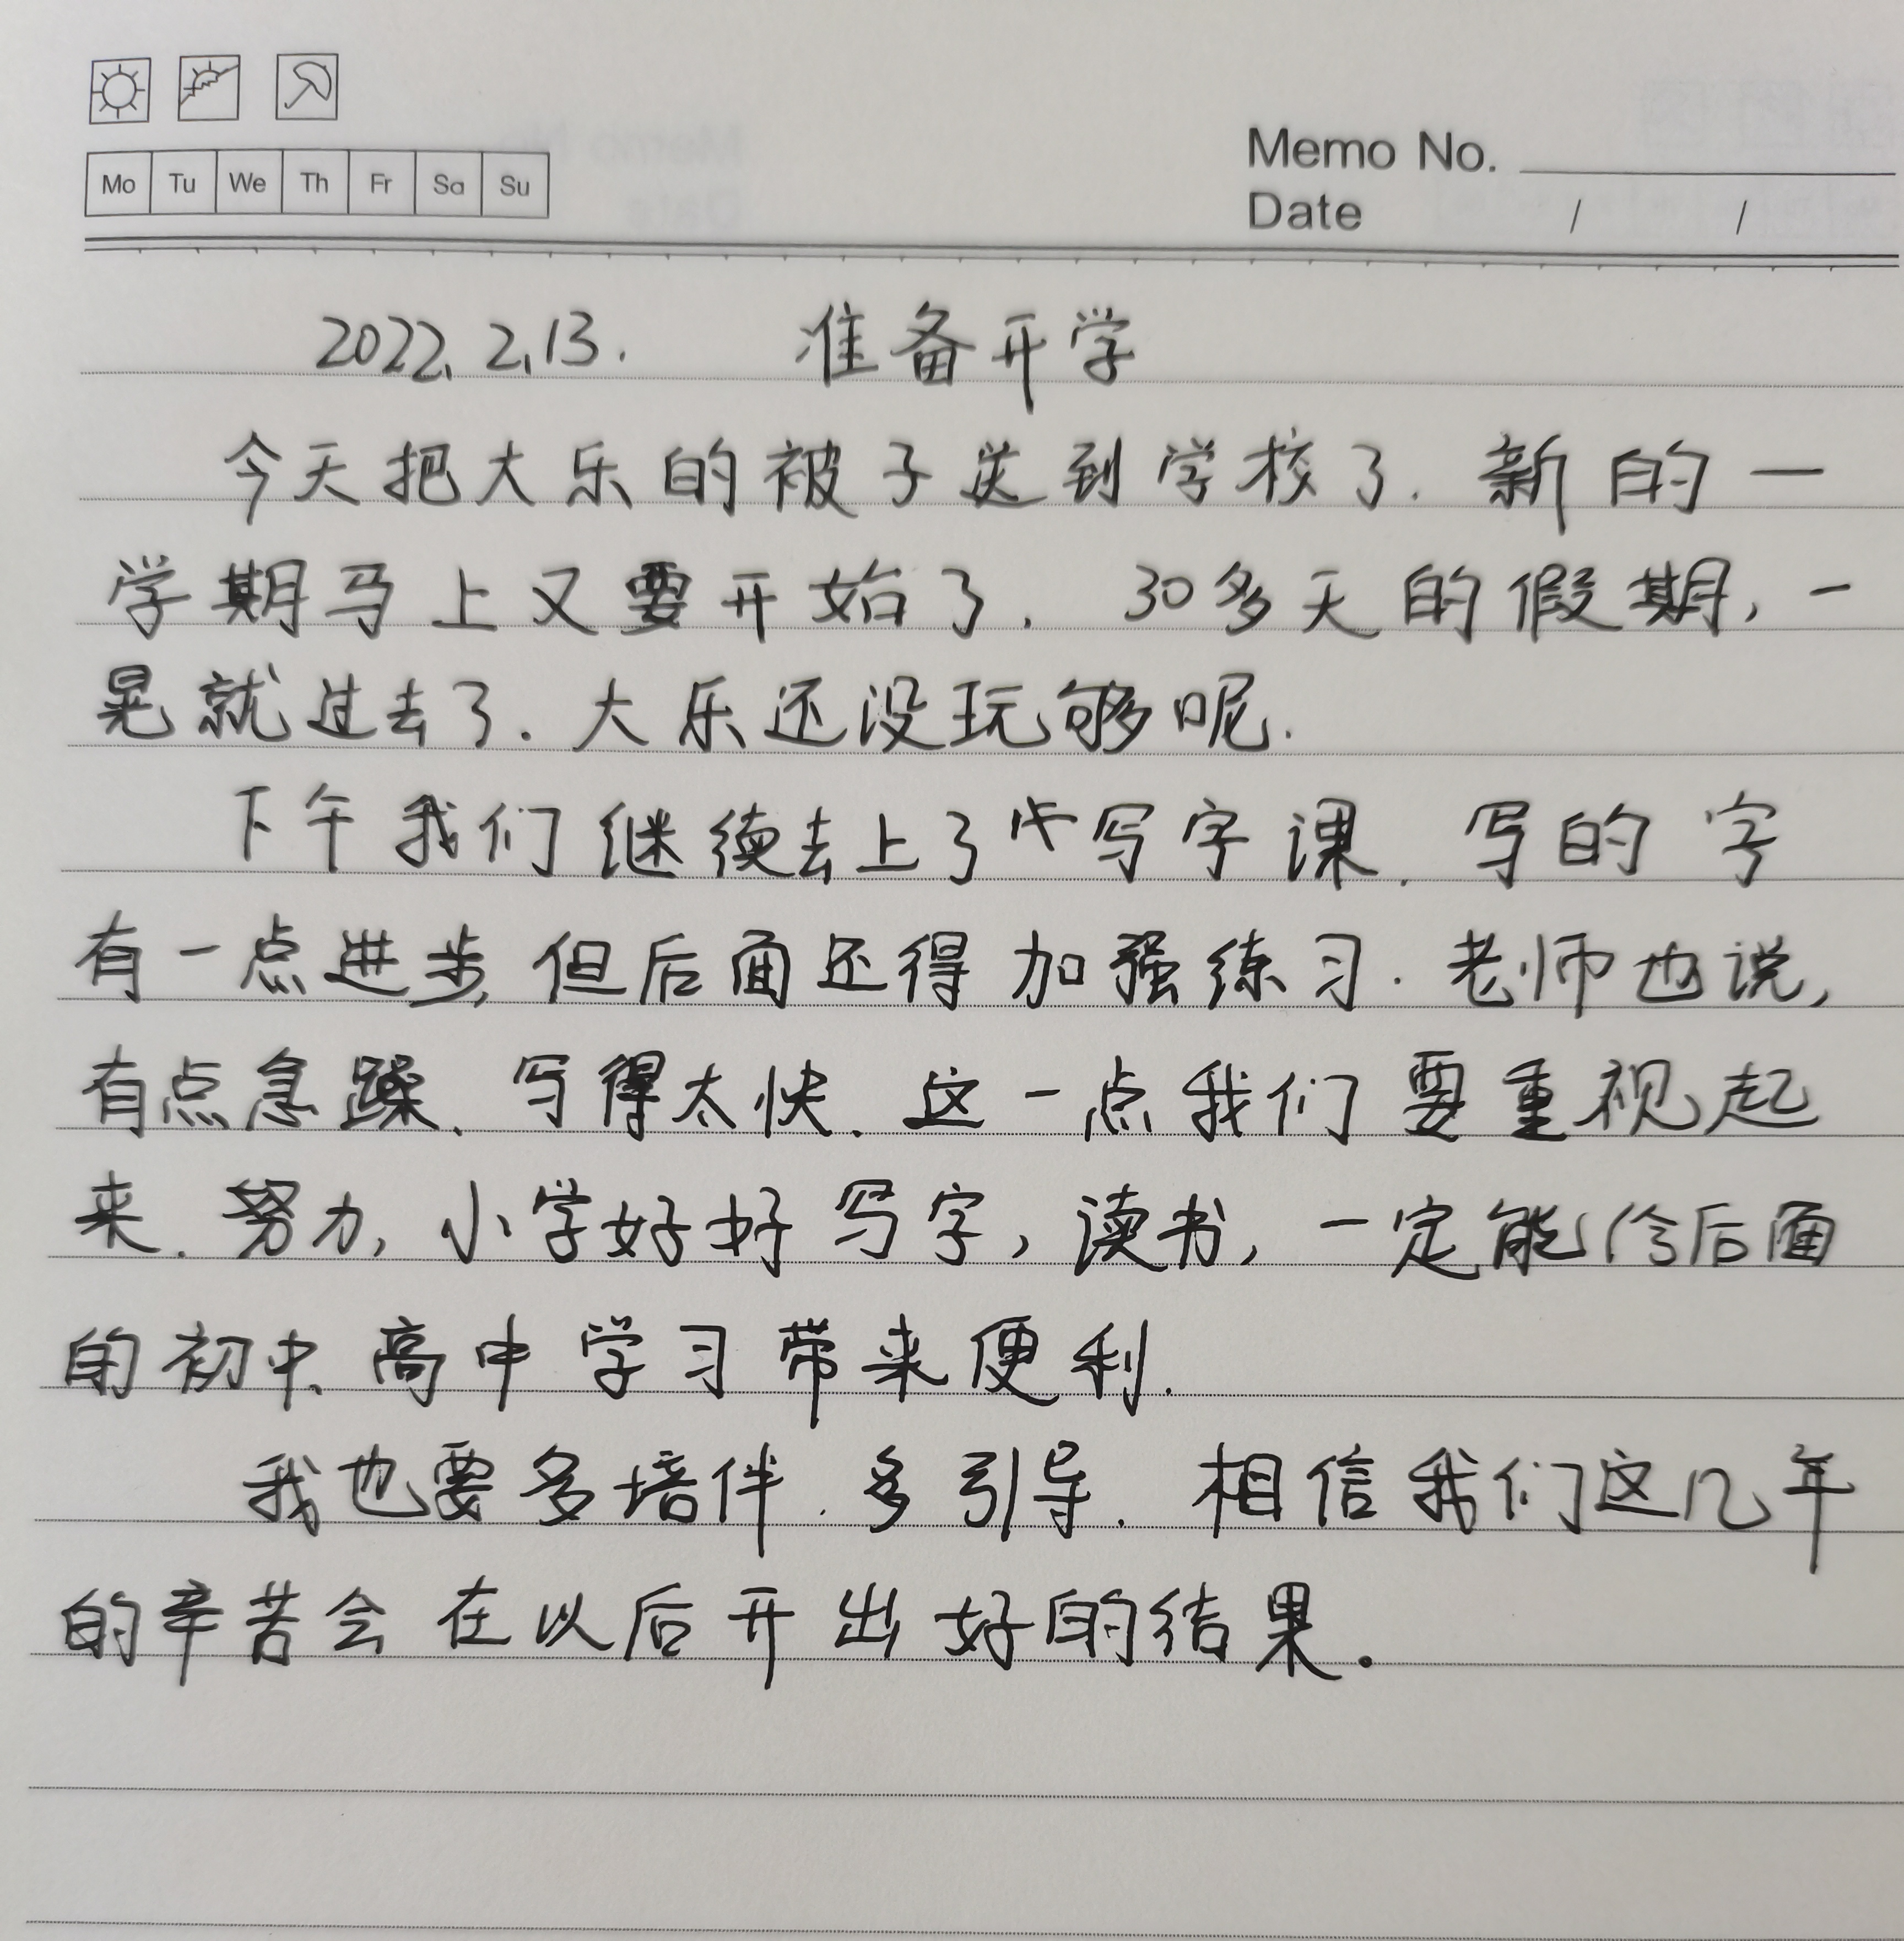 Mo Tu We Th Fr Sa Su
Memo No.
Date / /
2022.2.13. 准备开学
今天把大乐的被子送到学校了.新的一
学期马上又要开始了. 30多天的假期,一
晃就过去了.大乐还没玩够呢.
下午我们继续去上了写字课.写的字
有一点进步,但后面还得加强练习.老师也说,
有点急躁、写得太快.这一点我们要重视起
来.努力,小学好好写字,读书,一定能给后面
的初中、高中学习带来便利.
我也要多培伴.多引导.相信我们这几年
的辛苦会在以后开出好的结果.